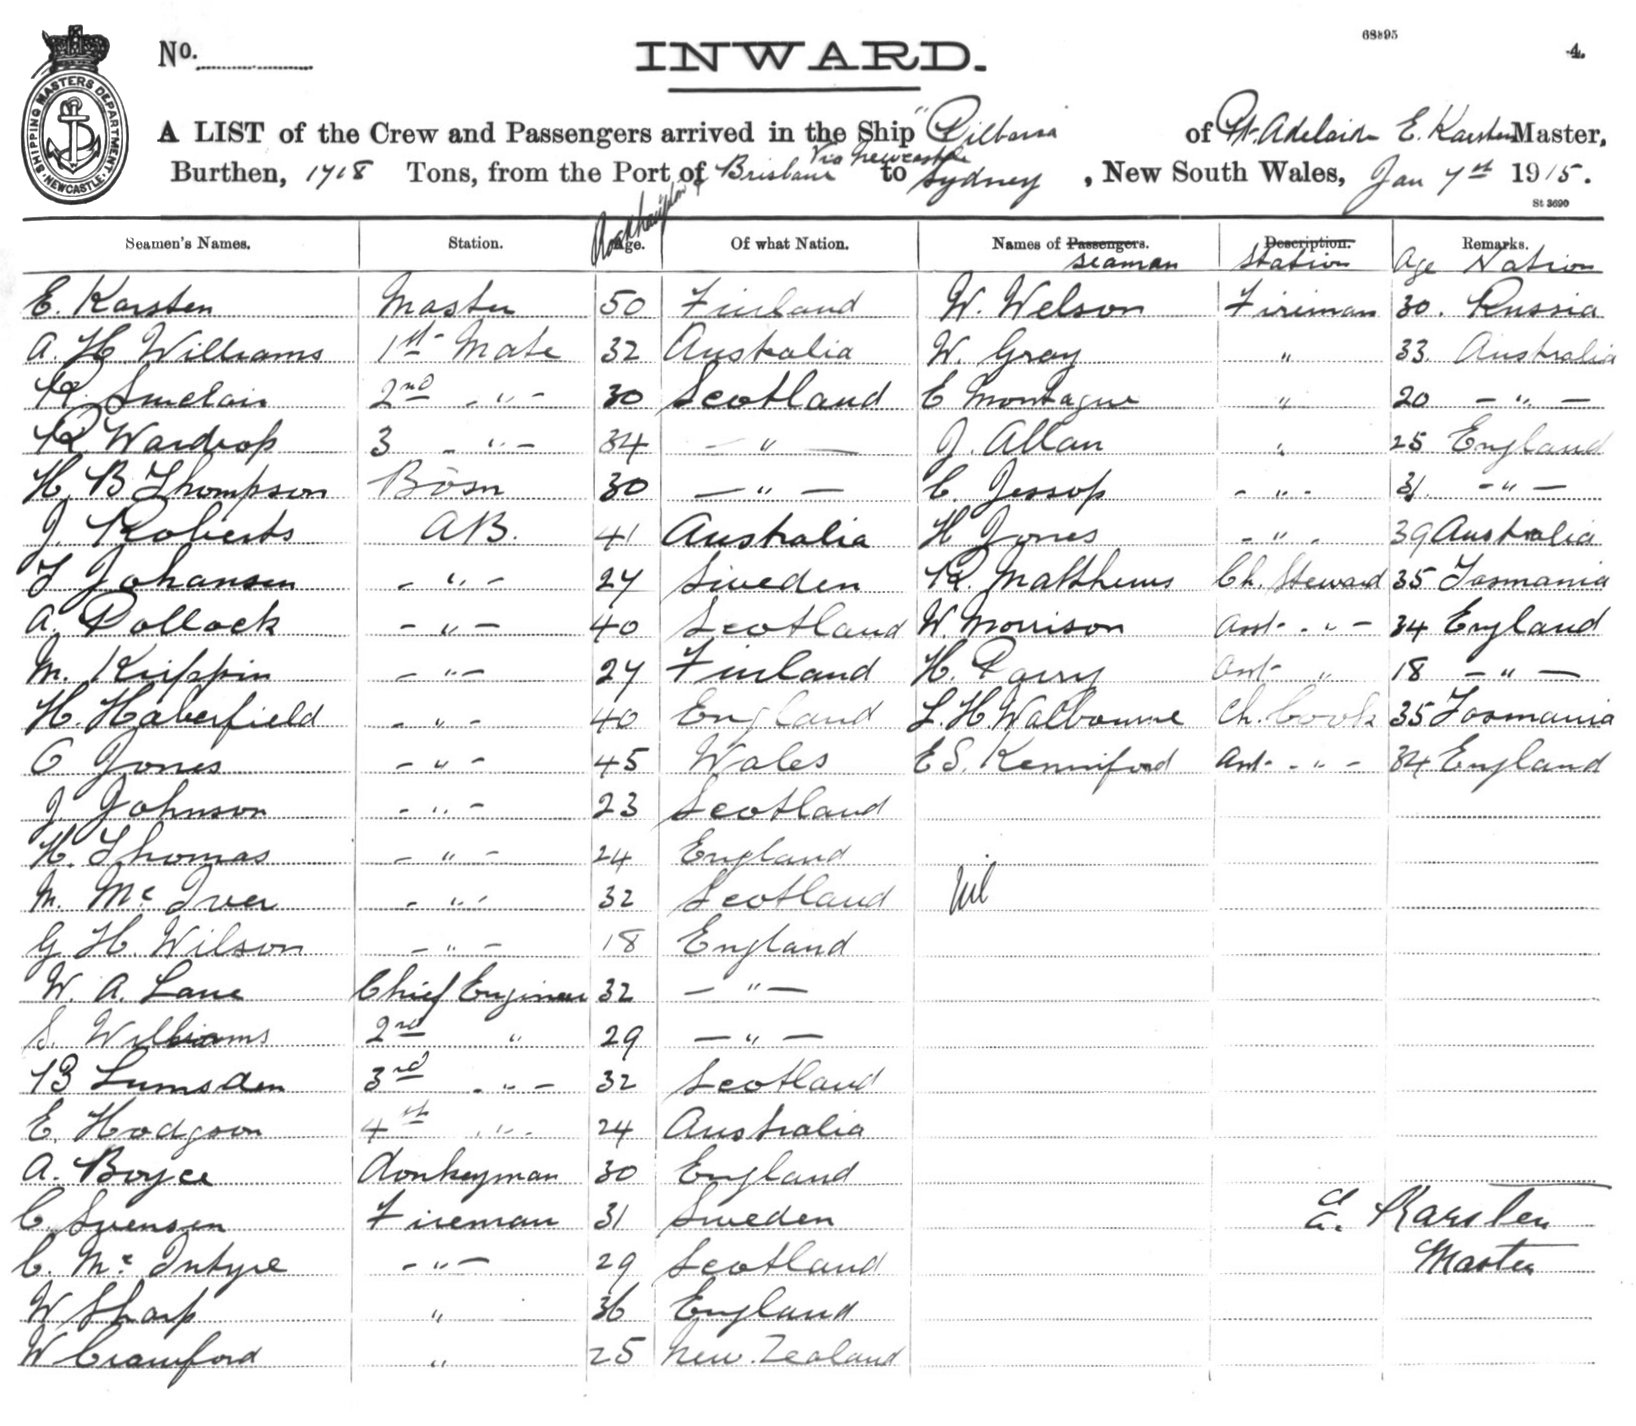 68895
No. INWARD. 4.
SHIPPING MASTERS DEPARTMENT. NEWCASTLE.
A LIST of the Crew and Passengers arrived in the Ship "Pilbarra of Pt. Adelaide E. Karsten Master,
Via Newcastle
Burthen, 1718 Tons, from the Port of Brisbane to Sydney, New South Wales, Jan 7th 1915.
Rockhampton
St 3690
Seamen's Names. Station. Age. Of what Nation. Names of Passengers. Description. Remarks.
Seaman Station Age Nation
E. Karsten Master 50 Finland W. Welson Fireman 30. Russia
A. H. Williams 1st Mate 32 Australia W. Gray " 33. Australia
R. Sinclair 2nd - " - 30 Scotland E Montague " 20 - " -
R. Wardrop 3 - " - 34 - " - J. Allan " 25 England
H. B Thompson Bosn 30 - " - C. Jessop - " - 31. - " -
J. Roberts AB. 41 Australia H Jones - " - 39 Australia
T Johansen - " - 27 Sweden R. Matthews Ch. Steward 35 Tasmania
A. Pollock - " - 40 Scotland W. Morrison Asst - " - 34 England
M. - " - 27 Finland H. Parry Ast - " 18 - " -
H. Haberfield - " - 40 England L. H. Walbourne Ch. Cook 35 Tasmania
C Jones - " - 45 Wales E S. Kenniford Ast - " - 34 England
J. Johnson - " - 23 Scotland
H. Thomas - " - 24 England
M. McIver - " - 32 Scotland Nil
G. H. Wilson - " - 18 England
W. A. Lane Chief Engineer 32 - " -
S. Williams 2nd " 29 - " -
B Lumsden 3rd - " - 32 Scotland
E. Hodgson 4th - " - 24 Australia
A. Boyce donkeyman 30 England
C. Svensen Fireman 31 Sweden E. Karsten
C. McIntyre - " - 29 Scotland Master
W Sharp " 36 England
W Crawford " 25 New Zealand